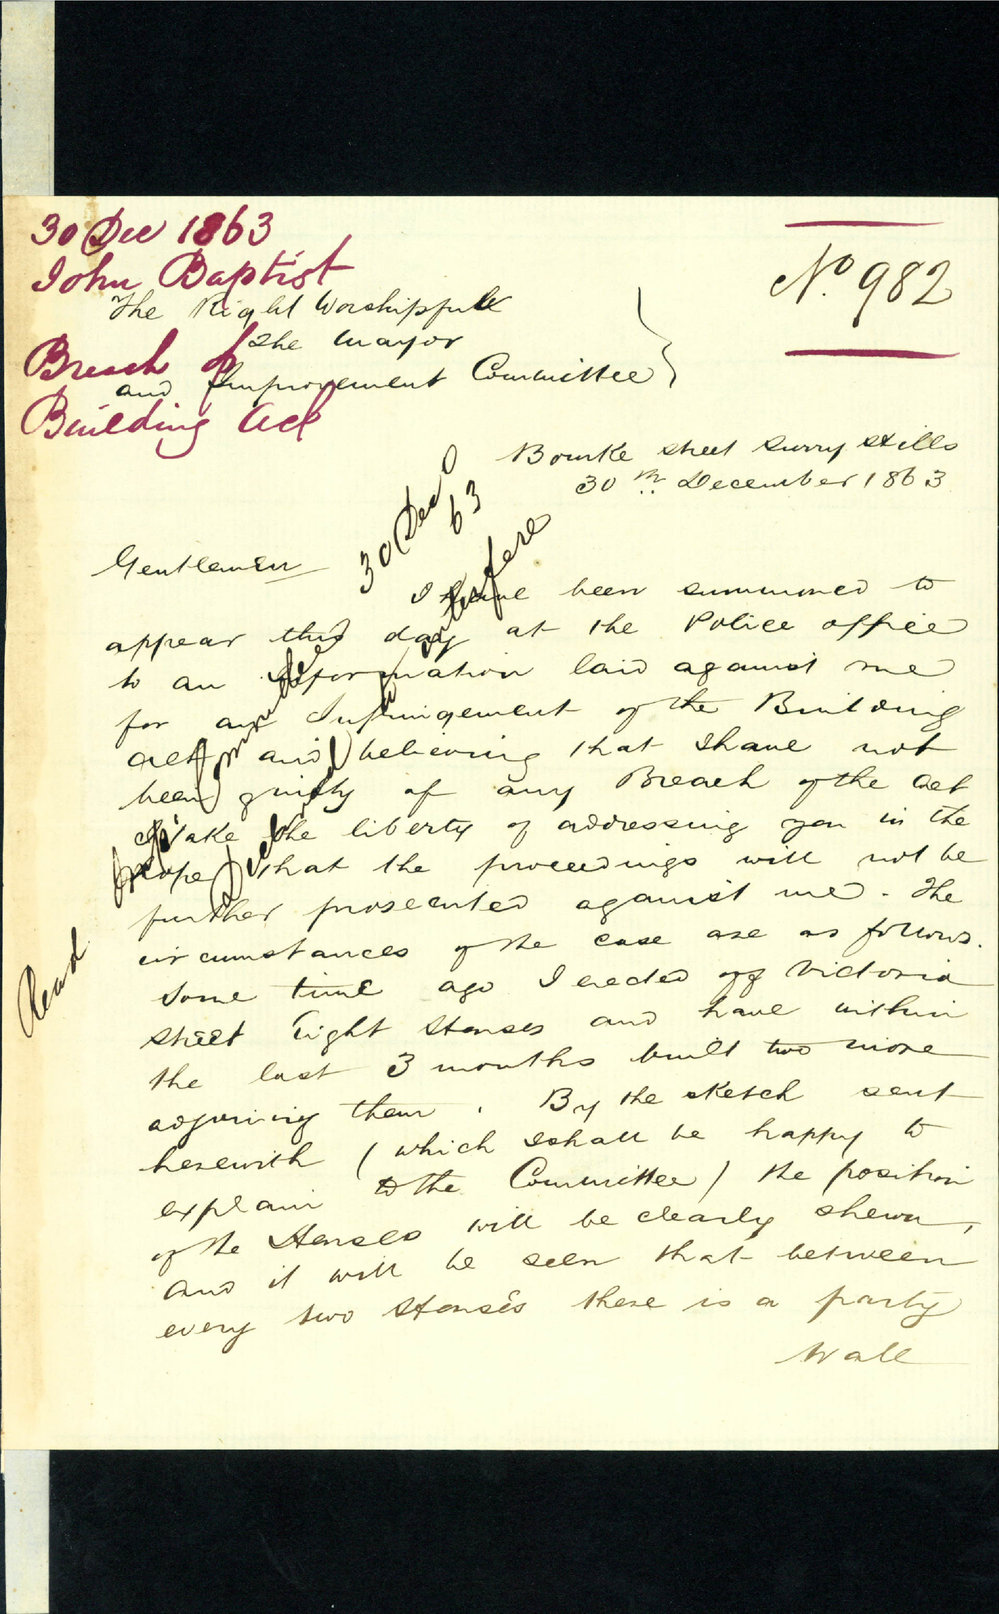 30 Dec 1863
John Baptist
Breach of
Building Act
No. 982
The Right Worshipfull
The Mayor
and Improvement Committee
Bourke Street Surry Hills
30th December 1863
30 Dec 63
Read
Gentlemen
I have been summoned to
appear this day at the Police office
to an information laid against me
for an Infringement of the Building
Act and believing that I have not
been guilty of any Breach of the Act
I take the liberty of addressing you in the
hope that the proceedings will not be
further prosecuted against me. The
circumstances of the case are as follows.
Some time ago I erected off Victoria
Street Eight Houses and have within
the last 3 months built two more
adjoining them. By the sketch sent
herewith (which I shall be happy to
explain to the Committee) the position
of the Houses will be clearly shewn,
and it will be seen that between
every two Houses there is a party
Wall